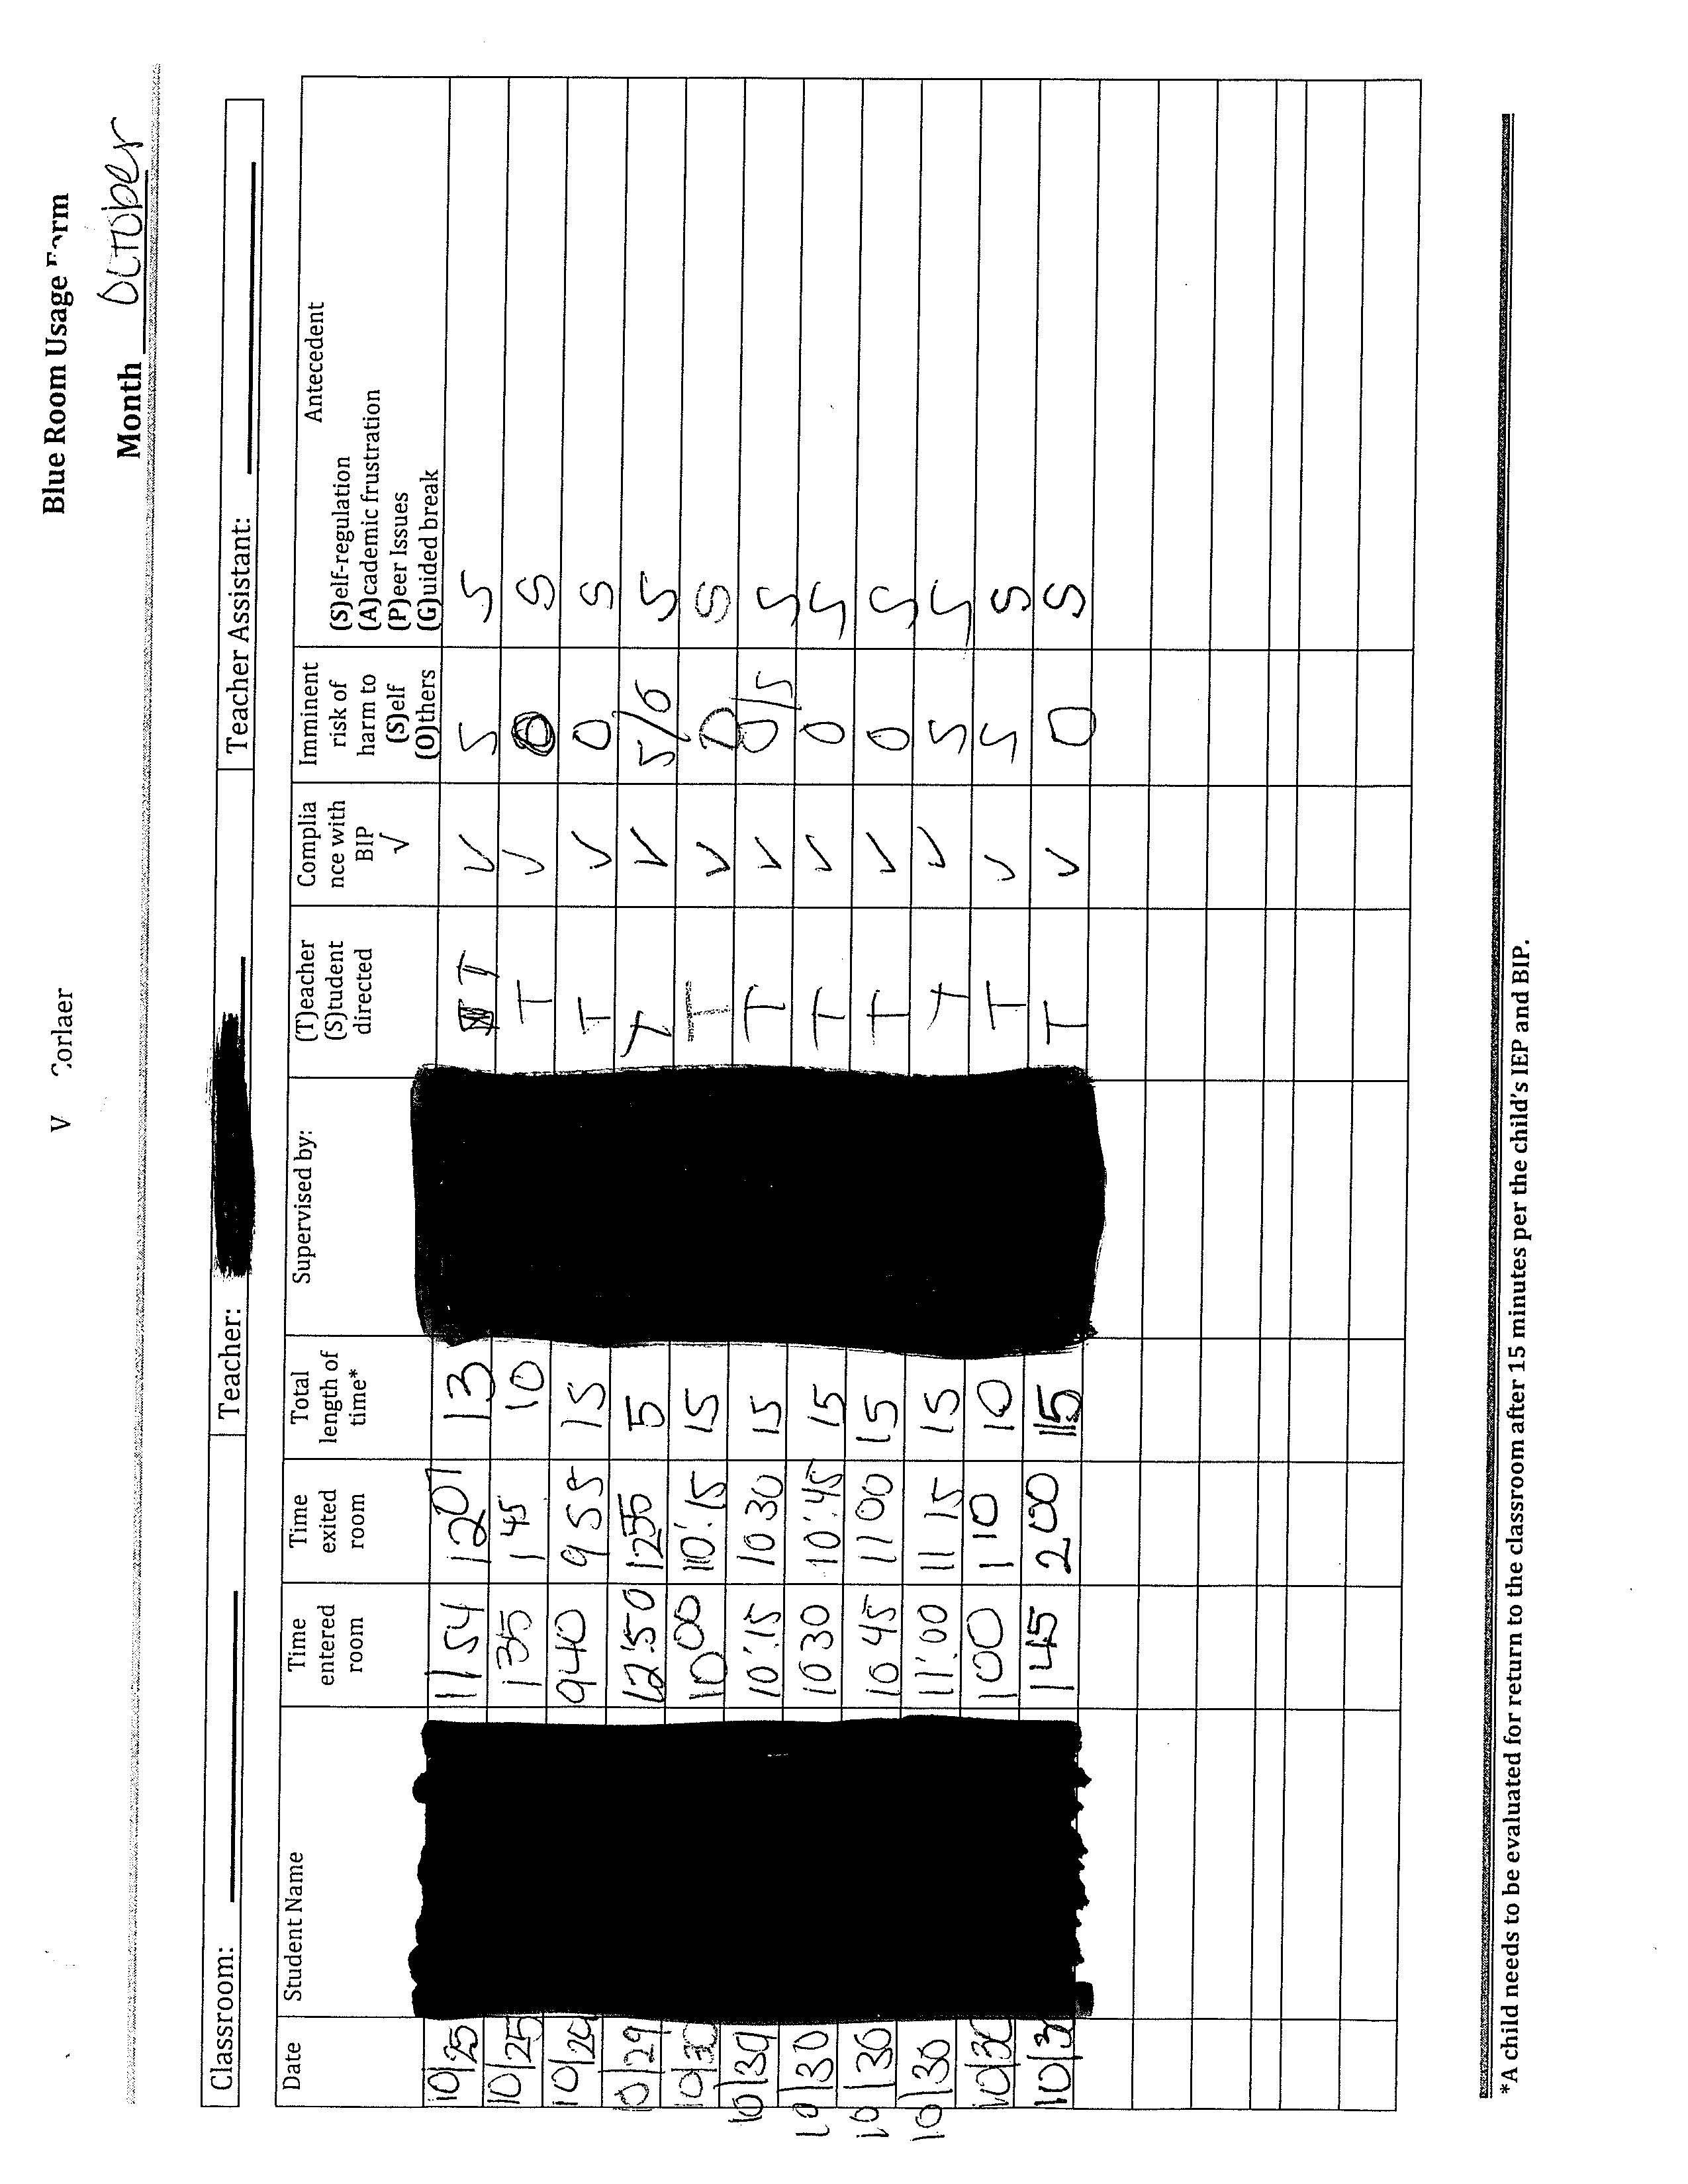 V Corlaer
Blue Room Usage Form
Month October
Classroom: Teacher: Teacher Assistant:
Date Student Name Time entered room Time exited room Total length of time* Supervised by: (T)eacher (S)tudent directed Complia nce with BIP √ Imminent risk of harm to (S)elf (O)thers Antecedent (S)elf-regulation (A)cademic frustration (P)eer Issues (G)uided break
10/25 1154 1207 13 T √ S S
10/25 135 145 10 T √ O S
10/29 940 955 15 T √ O S
10/29 12:50 1255 5 T √ S/O S
10/30 1000 10:15 15 T √ O S
10/30 10:15 1030 15 T √ O/S S
10/30 1030 10:45 15 T √ O S
10/30 1045 1100 15 T √ O S
10/30 11:00 1115 15 T √ S S
10/30 100 110 10 T √ S S
10/3 145 200 15 T √ O S
*A child needs to be evaluated for return to the classroom after 15 minutes per the child's IEP and BIP.